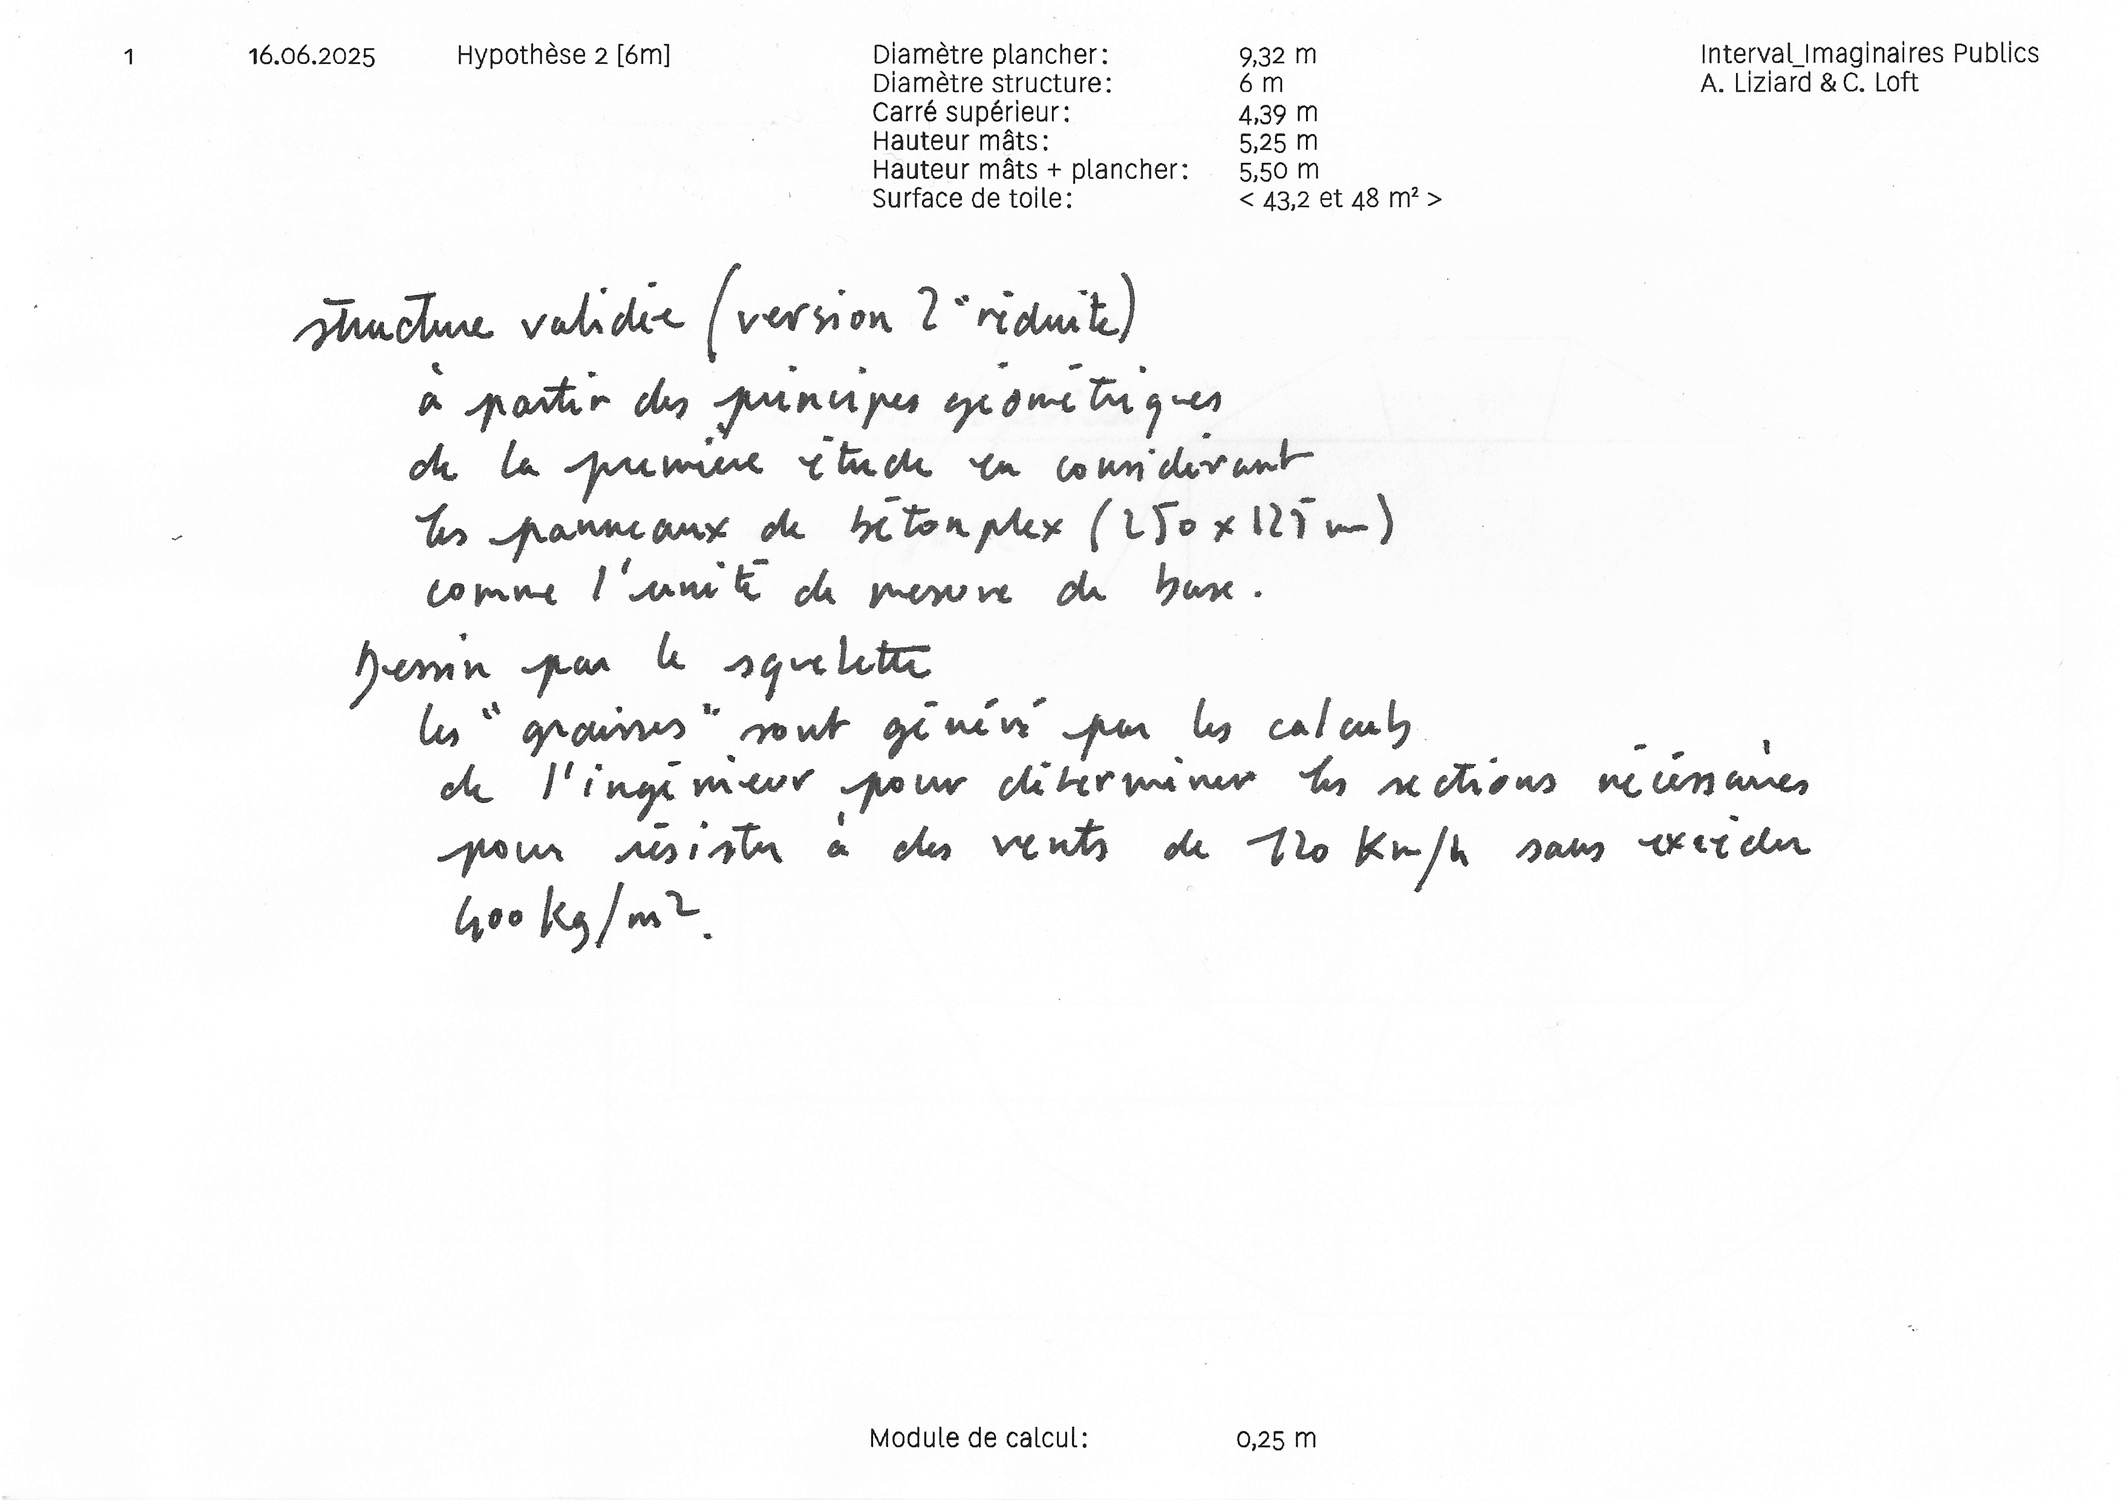 1 16.06.2025 Hypothèse 2 [6m] Diamètre plancher: 9,32 m Interval_Imaginaires Publics
Diamètre structure: 6 m A. Liziard & C. Loft
Carré supérieur: 4,39 m
Hauteur mâts: 5,25 m
Hauteur mâts + plancher: 5,50 m
Surface de toile: < 43,2 et 48 m² >
structure validée (version 2 "réduite)
à partir des principes géométriques
de la première étude en considérant
les panneaux de bétonplex (250 x 125 m)
comme l'unité de mesure de base.
Dessin par le squelette
les "graisses" sont généré par les calculs
de l'ingénieur pour déterminer les sections nécéssaires
pour résister à des vents de 120 Km/h sans excéder
400 kg/m².
Module de calcul: 0,25 m